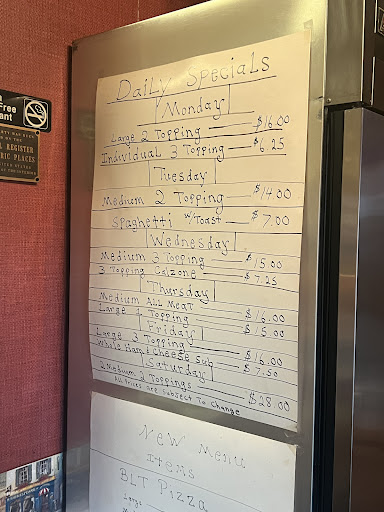 Daily Specials
Monday
Large 2 Topping $16.00
Individual 3 Topping $6.25
Tuesday
Medium 2 Topping $14.00
Spaghetti w/Toast $7.00
Wednesday
Medium 3 Topping $15.00
3 Topping Calzone $7.25
Thursday
Medium All Meat $16.00
Large 1 Topping $15.00
Friday
Large 3 Topping $16.00
Whole Ham & Cheese Sub $7.50
Saturday
2 Medium 2 Toppings $28.00
All Prices are Subject To Change
New Menu
Items
BLT Pizza
Large
Free
REGISTER
RIC PLACES